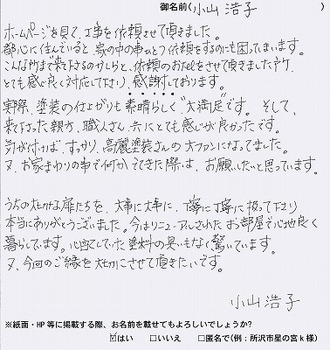 御名前( 小山 浩子 )
ホームページを見て、工事を依頼させて頂きました。
都心に住んでいると、家の中の事ひとつ依頼をするのにも困ってしまいます。
こんな所まで来て下さるのかしらと、依頼のお電話をさせて頂きましたが
とても感じ良く対応して下さり、感謝しております。
実際、塗装の仕上がりも素晴らしく"大満足"です。そして、
来て下さった親方、職人さん、共にとても感じが良かったです。
気が付けば、すっかり、高麗塗装さんの大ファンになってました。
又、お家まわりの事で何かでてきた際は、お願いしたいと思っています。
うちの大切な扉たちを、大事に大事に、丁寧に丁寧に扱って下さり
本当にありがとうございました。今はリニューアルされたお部屋で心地良く
暮らしています。心配していた塗料の臭いもなく驚いています。
又、今回のご縁を大切にさせて頂きたいです。
小山 浩子
※紙面・HP 等に掲載する際、お名前を載せてもよろしいでしょうか?
☑はい □いいえ □匿名で(例:所沢市星の宮k様)